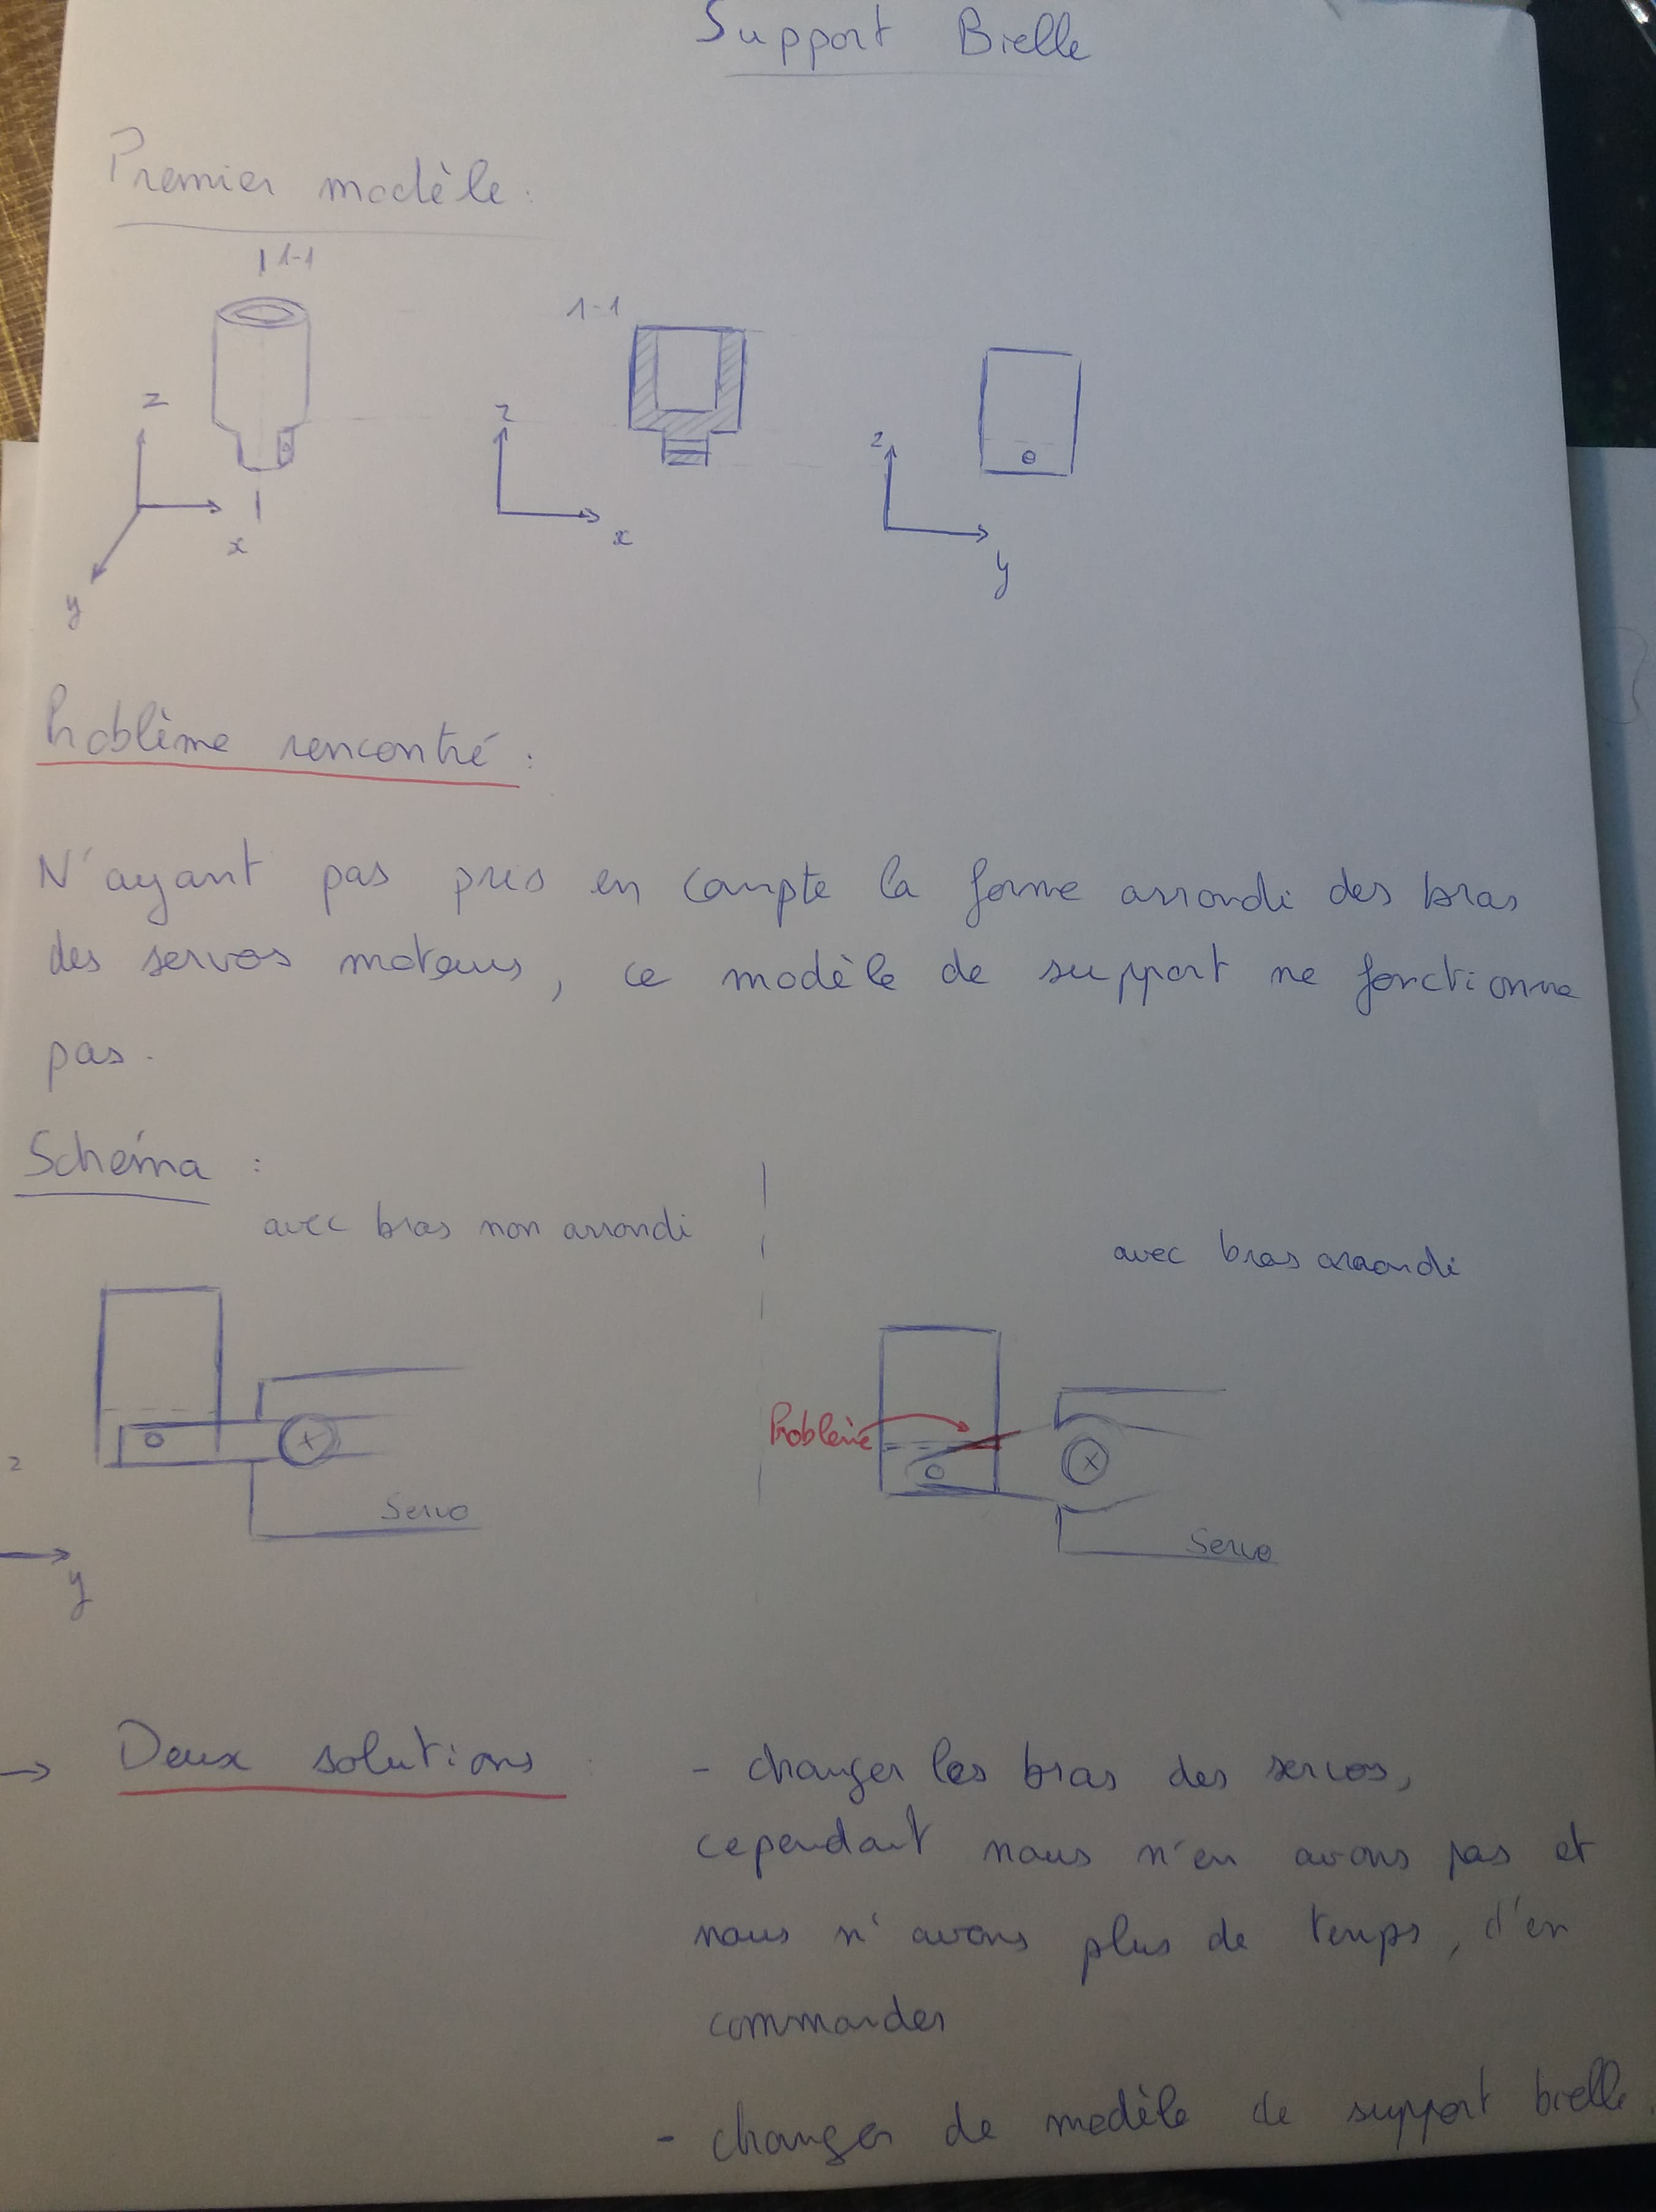 Support Bielle
Premier modèle :
1-1
1-1
z
z
z
x
x
y
y
Problème rencontré :
N'ayant pas pris en compte la forme arrondi des bras
des servos moteurs, ce modèle de support ne fonctionne
pas.
Schéma :
avec bras non arrondi
avec bras arrondi
Problème
z
Servo
Servo
y
→ Deux solutions : - changer les bras des servos,
cependant nous n'en avons pas et
nous n'avons plus de temps, d'en
commander
- changer de modèle de support bielle.